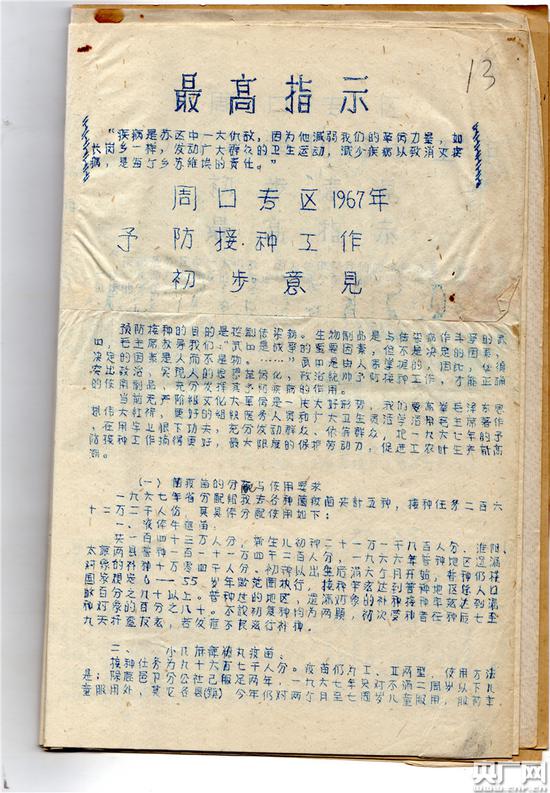 13
最高指示
“疾病是苏区中一大仇敌，因为他减弱我们的革命力量，如
长岗乡一样，发动广大群众的卫生运动，减少疾病以致消灭疾
病，是每个乡苏维埃的责任。”
周口专区1967年
予防接种工作
初步意见
预防接种的目的是控制传染病。生物制品是与传染病作斗争的武
四，毛主席教导我们：“武四是战争的重要因素，但不是决定的因素，
决定的因素是人而不是物。……”武四是由人来掌握的，因此，
突出政治，实现人的思想革命化，政治统帅予防接种工作，才能正确
的使用制品，充分发挥其予防疾病的作用。
当前无产阶级文化大革命是一片大好形势，我们要高举毛泽东思
想伟大红旗，更好的组织医务人员和广大卫生员活学活用毛主席著作
，在用字上狠下功夫，充分发动群众，依靠群众，把一九六七年的予
防接种工作搞得更好，最大限度的保护劳动力，促进工农业生产新高
潮。
(一) 菌疫苗的分配与使用要求
一九六七年省分配给我专各种菌疫苗共计五种，接种任务二百六
十二万二千人份，
一、液体牛痘苗：
买一百四十三万人份，新生儿初种二十一万一千八百人份，淮阳、
太康两县普种一百一十一万四千二百人份，一九六六年普种地区遗漏
对象的补种十万零四千人份。初种以出生后满六个月开始，普种仍按
国家规定6—55岁年龄范围执行。接种率应达到普种地区总人口
百分之九十以上。普种过的地区，遗漏对象的补种接种率应达到漏
种对象的百分之八十。不论初复种均为两颗，初次受种者在种后七至
九天
二、小儿麻痹糖丸疫苗：
接种任务为九十六万七千人份。疫苗仍为Ⅰ、Ⅱ两型，使用方法
是：除鹿邑卫分公社已服足两年，一九六七年只对不满二周岁以下儿
童服用外，其它各县(镇)今年仍对两个月至七周岁儿童服用，服药率
央广网
www.cnr.cn